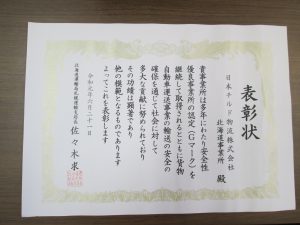 表彰状
日本チルド物流株式会社
北海道事業所 殿
貴事業所は多年にわたり安全性
優良事業所の認定(Gマーク)を
継続して取得されるとともに貨物
自動車運送事業の輸送の安全の
確保を通じて社会に対して
多大な貢献に努められており
その功績は顕著であり
他の模範となるものであります
よってこれを表彰します
令和元年六月二十一日
北海道運輸局札幌運輸支局長 佐々木求